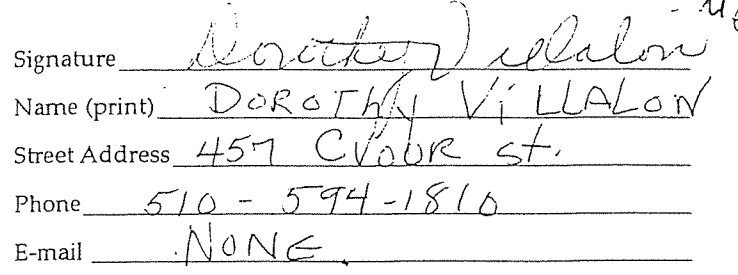 Signature Dorothy Villalon
Name (print) DOROThy ViLLALON
Street Address 457 st.
Phone 510 - 594-1810
E-mail NONE